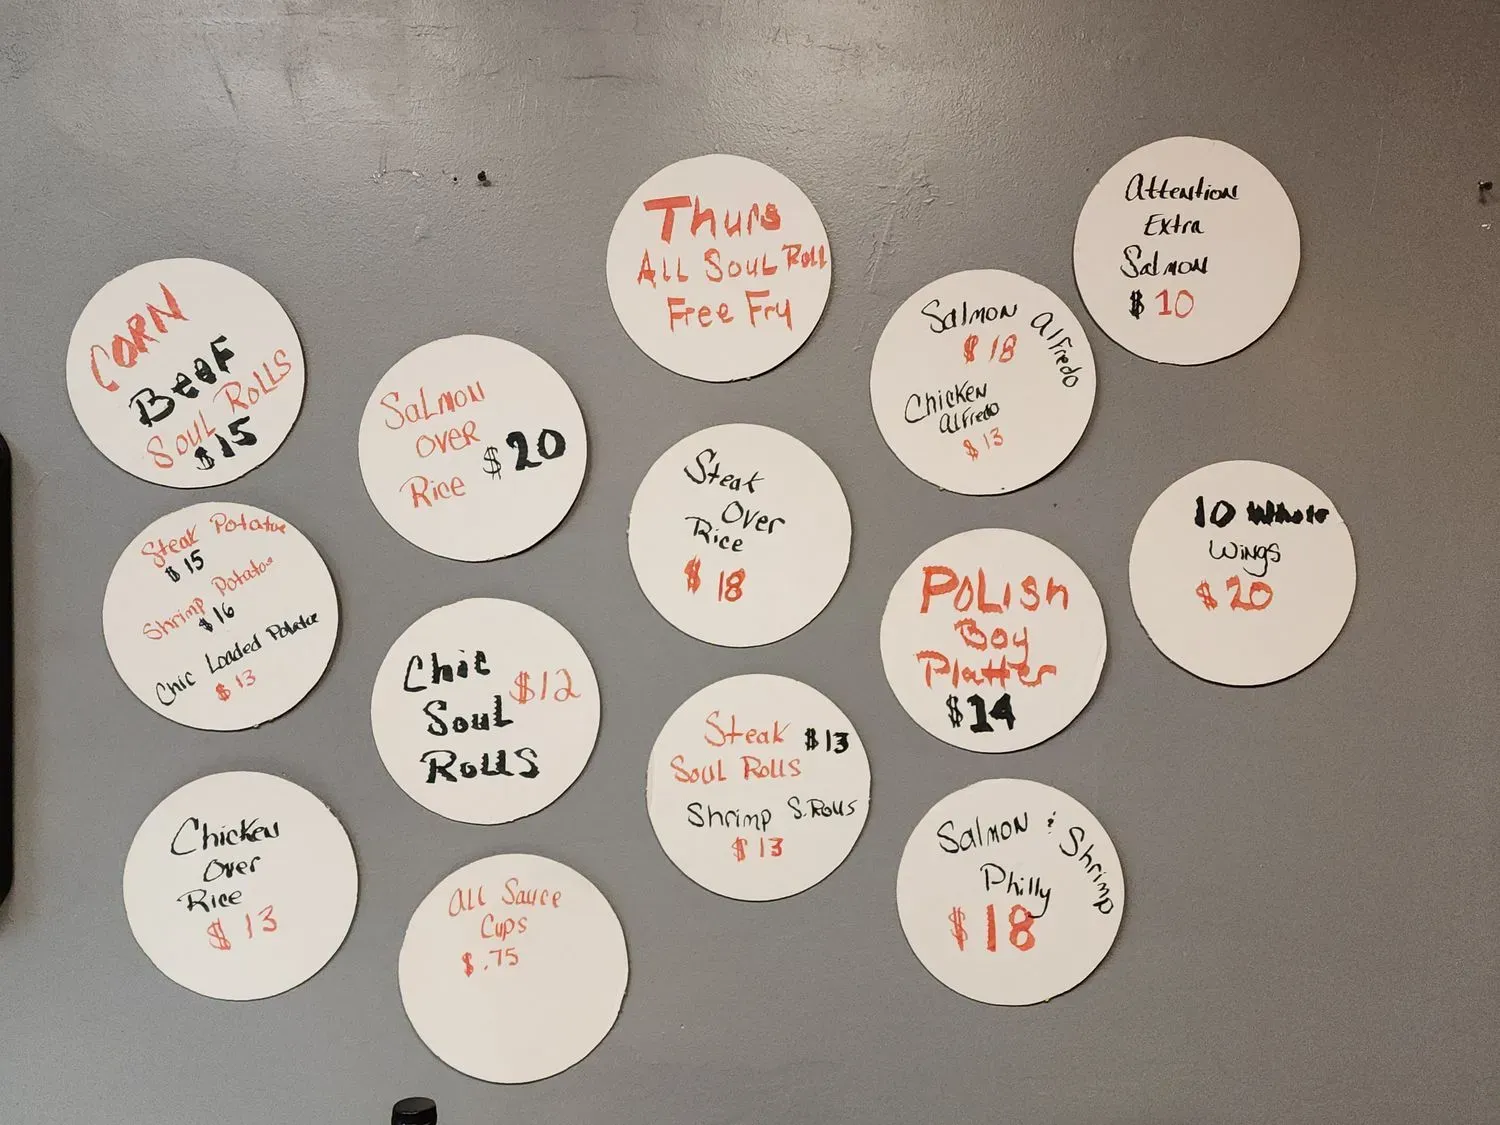 CORN
BEEF
SOUL ROLLS
$15
Steak Potatoe
$15
Shrimp Potatoe
$16
Chic Loaded Potatoe
$13
Chicken
Over
Rice
$13
Salmon
over
Rice
$20
Chic
Soul
Rolls
$12
All Sauce
Cups
$.75
Thurs
All Soul Roll
Free Fry
Steak
Over
Rice
$18
Steak $13
Soul Rolls
Shrimp S. Rolls
$13
Salmon Alfredo
$18
Chicken
Alfredo
$13
Polish
Boy
Platter
$14
Salmon & Shrimp
Philly
$18
Attention
Extra
Salmon
$10
10 Whole
Wings
$20